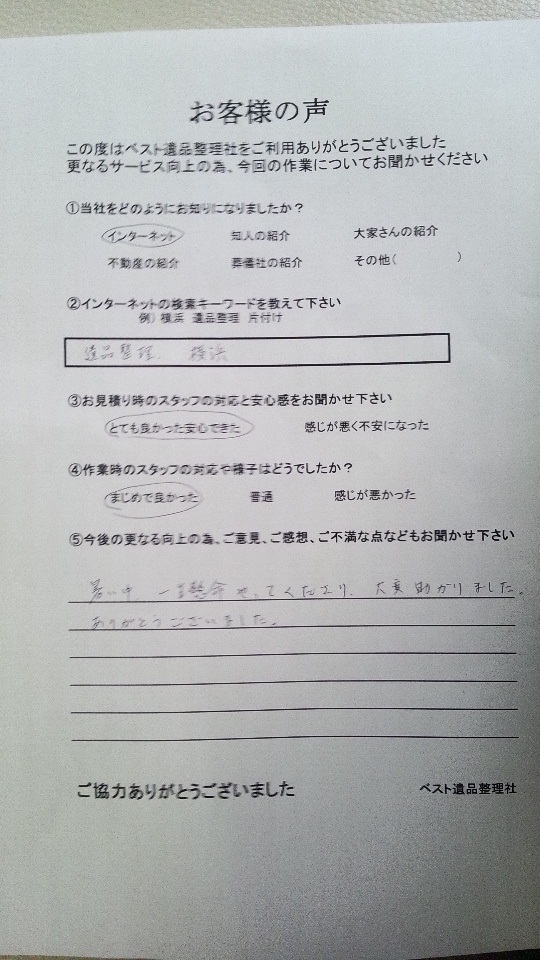 お客様の声
この度はベスト遺品整理社をご利用ありがとうございました
更なるサービス向上の為、今回の作業についてお聞かせください
①当社をどのようにお知りになりましたか？
インターネット 知人の紹介 大家さんの紹介
不動産の紹介 葬儀社の紹介 その他（ ）
②インターネットの検索キーワードを教えて下さい
例）横浜 遺品整理 片付け
遺品整理. 横浜
③お見積り時のスタッフの対応と安心感をお聞かせ下さい
とても良かった安心できた 感じが悪く不安になった
④作業時のスタッフの対応や様子はどうでしたか？
まじめで良かった 普通 感じが悪かった
⑤今後の更なる向上の為、ご意見、ご感想、ご不満な点などもお聞かせ下さい
暑い中、一生懸命やってくださり、大変助かりました。
ありがとうございました。
ご協力ありがとうございました
ベスト遺品整理社